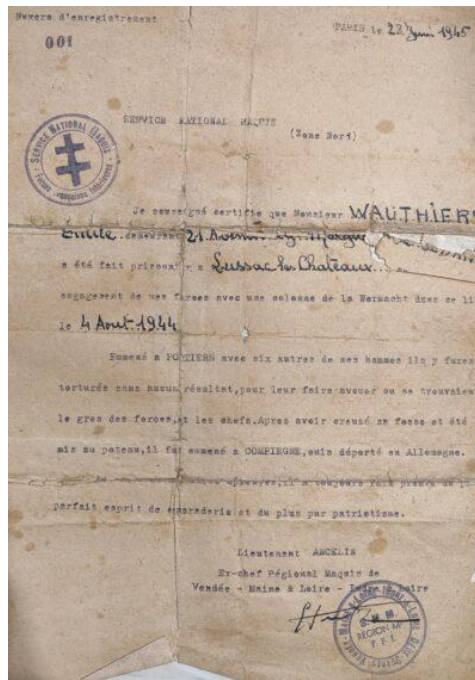 Numero d'enregistrement
PARIS le 22 Juin 1945
001
SERVICE NATIONAL MAQUIS
(Zone Nord)
SERVICE NATIONAL MAQUIS
Forces Françaises Intérieures
Je soussigné certifie que Monsieur WAUTHIERS
Emile demeurant 21 Avenue
a été fait prisonnier a Lussac les Chateaux
engagement de mes forces avec une colonne de la Wermacht dans ce li
le 4 Aout 1944
Emmené a POITIERS avec six autres de mes hommes ils y furen
torturés sans aucun résultat, pour leur faire avouer ou se trouvaien
le gros des forces, et les chefs. Apres avoir creusé sa fosse et été
mis au poteau, il fut emmené a COMPIEGNE, puis déporté en Allemagne.
il a toujours fait preuve
parfait esprit de camaraderie et du plus pur patriotisme.
Lieutenant ANCELIN
Ex-chef Régional Maquis de
Vendée - Maine & Loire - Indre & Loire
S. N. M.
REGION
F. F. I.